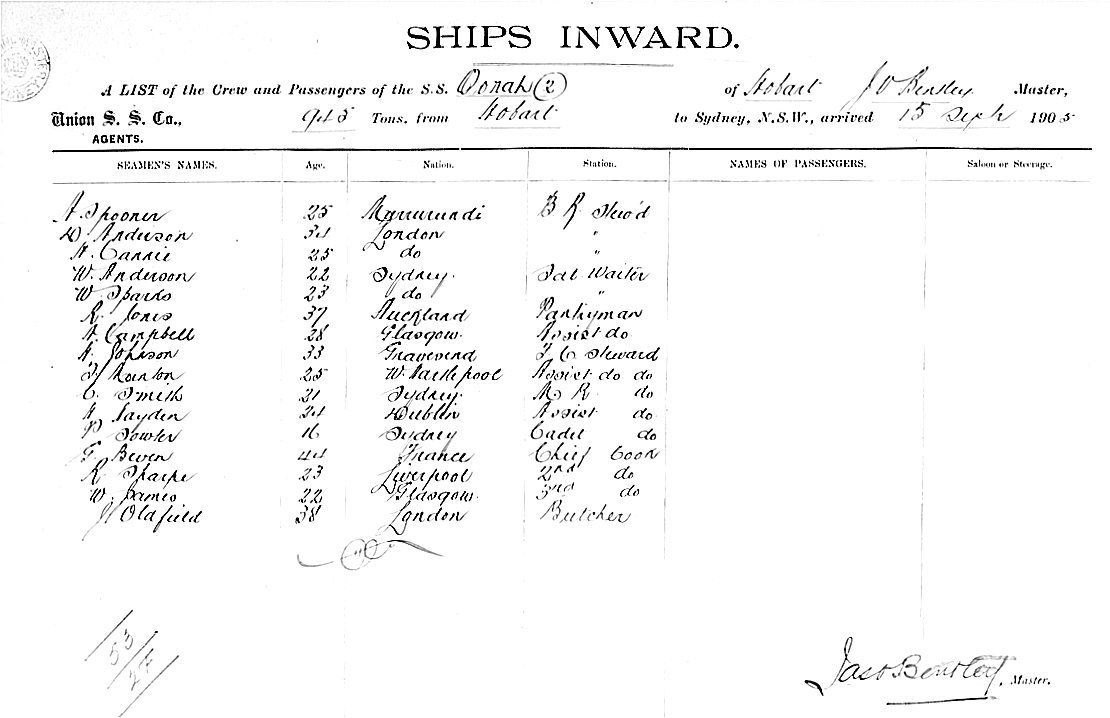 SHIPS INWARD.
A LIST of the Crew and Passengers of the S.S. Oonah (2) of Hobart J O Bentley Master,
Union S. S. Co., 945 Tons, from Hobart to Sydney, N.S.W., arrived 15 Sept 1905
AGENTS.
SEAMEN'S NAMES. Age. Nation. Station. NAMES OF PASSENGERS. Saloon or Steerage.
A. Spooner 25 Murrurundi B R Stew'd
D. Anderson 34 London "
A. Carrie 25 do "
W. Anderson 22 Sydney. Sal Waiter
W. Sparks 23 do "
R. Jones 37 Auckland Pantryman
A. Campbell 28 Glasgow. Assist do
A. Johnson 33 Gravesend F C Steward
25 W. Hartlepool Assist do do
C. Smith 21 Sydney. M R. do
A. Hayden 24 Dublin Assist do
P. Fowler 16 Sydney Cadet do
F. Beven 44 France Chief Cook
R. Sharpe 23 Liverpool 2nd do
W. James 22 Glasgow. 3rd do
J Oldfield 38 London Butcher
53
24
Jas O Bentley, Master.